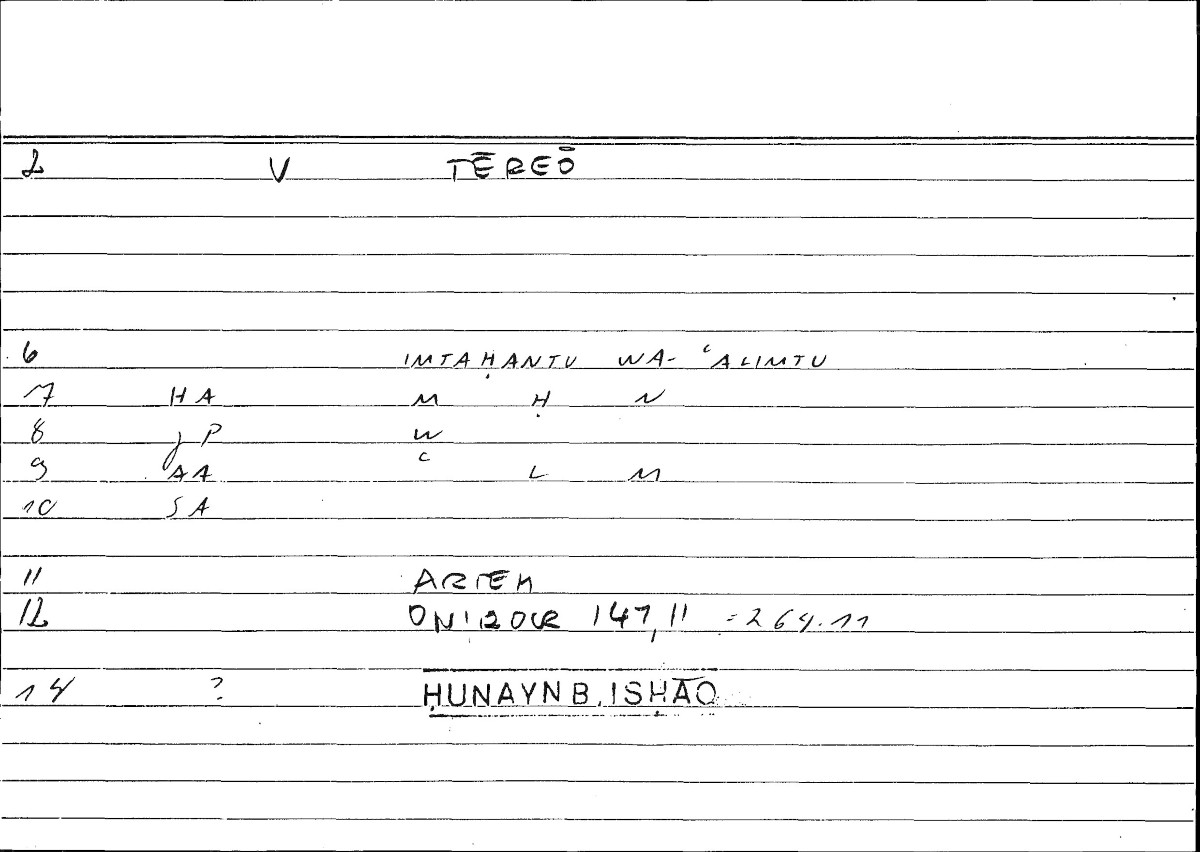 2 V TĒREŌ
6 IMTAḤANTU WA- ʿALIMTU
7 HA M Ḥ N
8 JP W
9 AA ʿ L M
10 SA
11 ARTEM
12 ONIROCR 147,11 = 264.11
14 ? ḤUNAYN B. ISḤĀQ